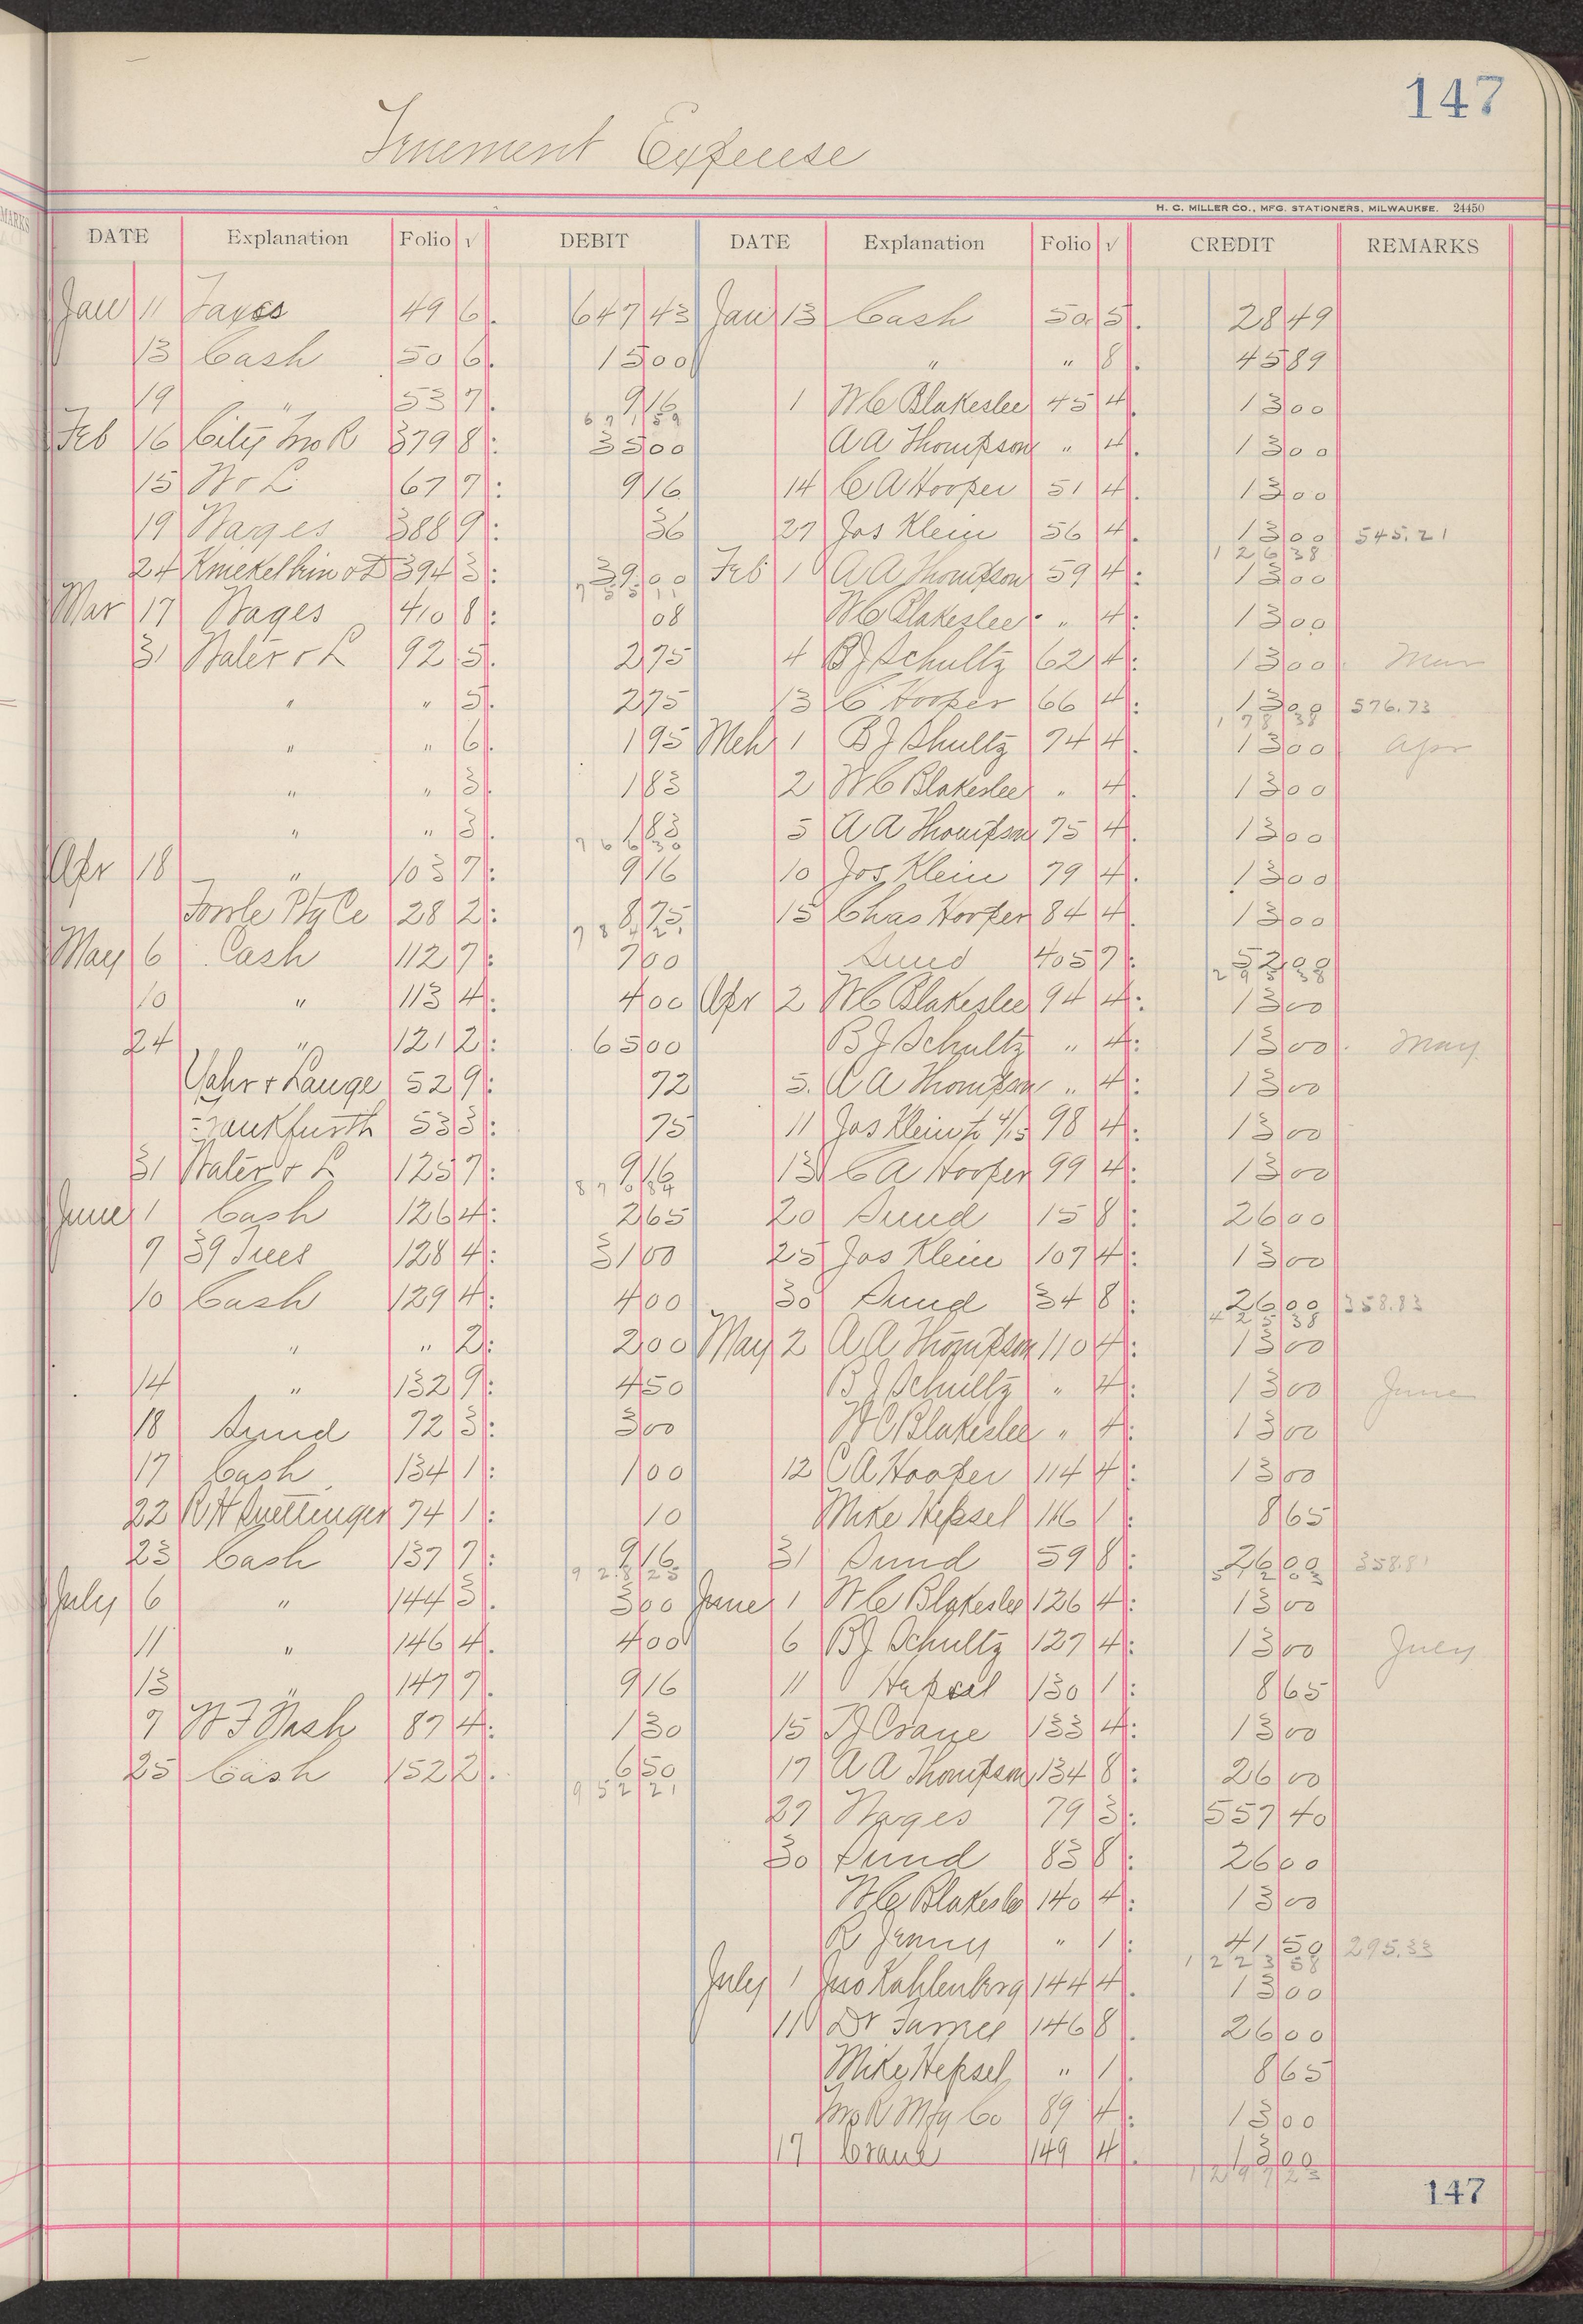 147
Tenement Expense
H. C. MILLER CO., MFG. STATIONERS, MILWAUKEE. 24450
DATE Explanation Folio √ DEBIT DATE Explanation Folio √ CREDIT REMARKS
Jan 11 Taxes 49 6 647 43 Jan 13 Cash 50 5 28 49
13 Cash 50 6 15 00 " " 8 45 89
19 " 53 7 9 16 1 W C Blakeslee 45 4 13 00
671 59
Feb 16 City Two R 379 8 35 00 A A Thompson " 4 13 00
15 W & L 67 7 9 16 14 C A Hooper 51 4 13 00
19 Wages 388 9 36 27 Jos Klein 56 4 13 00 545.21
126 38
24 394 3 39 00 Feb 1 A A Thompson 59 4 13 00
755 11
Mar 17 Wages 410 8 08 W C Blakeslee " 4 13 00
31 Water & L 92 5 2 75 4 B J Schultz 62 4 13 00 Mar
" " 5 2 75 13 C Hooper 66 4 13 00 576.73
178 38
" " 6 1 95 Mch 1 B J Shultz 74 4 13 00 Apr
" " 3 1 83 2 W C Blakeslee " 4 13 00
" " 3 1 83 5 A A Thompson 75 4 13 00
766 30
Apr 18 " 103 7 9 16 10 Jos Klein 79 4 13 00
28 2 8 75 15 Chas Hooper 84 4 13 00
784 21
May 6 Cash 112 7 7 00 Sund 405 7 52 00
295 38
10 " 113 4 4 00 Apr 2 W C Blakeslee 94 4 13 00
24 " 121 2 65 00 B J Schultz " 4 13 00 May
Vahr & Lange 52 9 72 5 A A Thompson " 4 13 00
Frankfurth 53 3 75 11 Jos Klein to 4/15 98 4 13 00
31 Water & L 125 7 9 16 13 C A Hooper 99 4 13 00
870 84
June 1 Cash 126 4 2 65 20 Sund 15 8 26 00
9 39 Trees 128 4 31 00 25 Jos Klein 107 4 13 00
10 Cash 129 4 4 00 30 Sund 34 8 26 00 358.83
425 38
" " 2 2 00 May 2 A A Thompson 110 4 13 00
14 " 132 9 4 50 B J Schultz " 4 13 00 June
18 Sund 72 3 3 00 W C Blakeslee " 4 13 00
17 Cash 134 1 1 00 12 C A Hooper 114 4 13 00
22 74 1 10 Mike Hepsel 116 1 8 65
23 Cash 137 7 9 16 31 Sund 59 8 26 00 358.81
928 25
July 6 " 144 3 3 00 June 1 W C Blakeslee 126 4 13 00
11 " 146 4 4 00 6 B J Schultz 127 4 13 00 July
13 " 147 7 9 16 11 Hepsel 130 1 8 65
7 W F Nash 87 4 1 30 15 Crane 133 4 13 00
25 Cash 152 2 6 50 17 A A Thompson 134 8 26 00
952 21
27 Wages 79 3 557 40
30 Sund 83 8 26 00
W C Blakeslee 140 4 13 00
R Jenny " 1 41 50 295.33
1223 58
July 1 Jno Kahlenberg 144 4 13 00
11 Dr James 146 8 26 00
Mike Hepsel " 1 8 65
Two R Mfg Co 89 4 13 00
17 Crane 149 4 13 00
1297 23
147